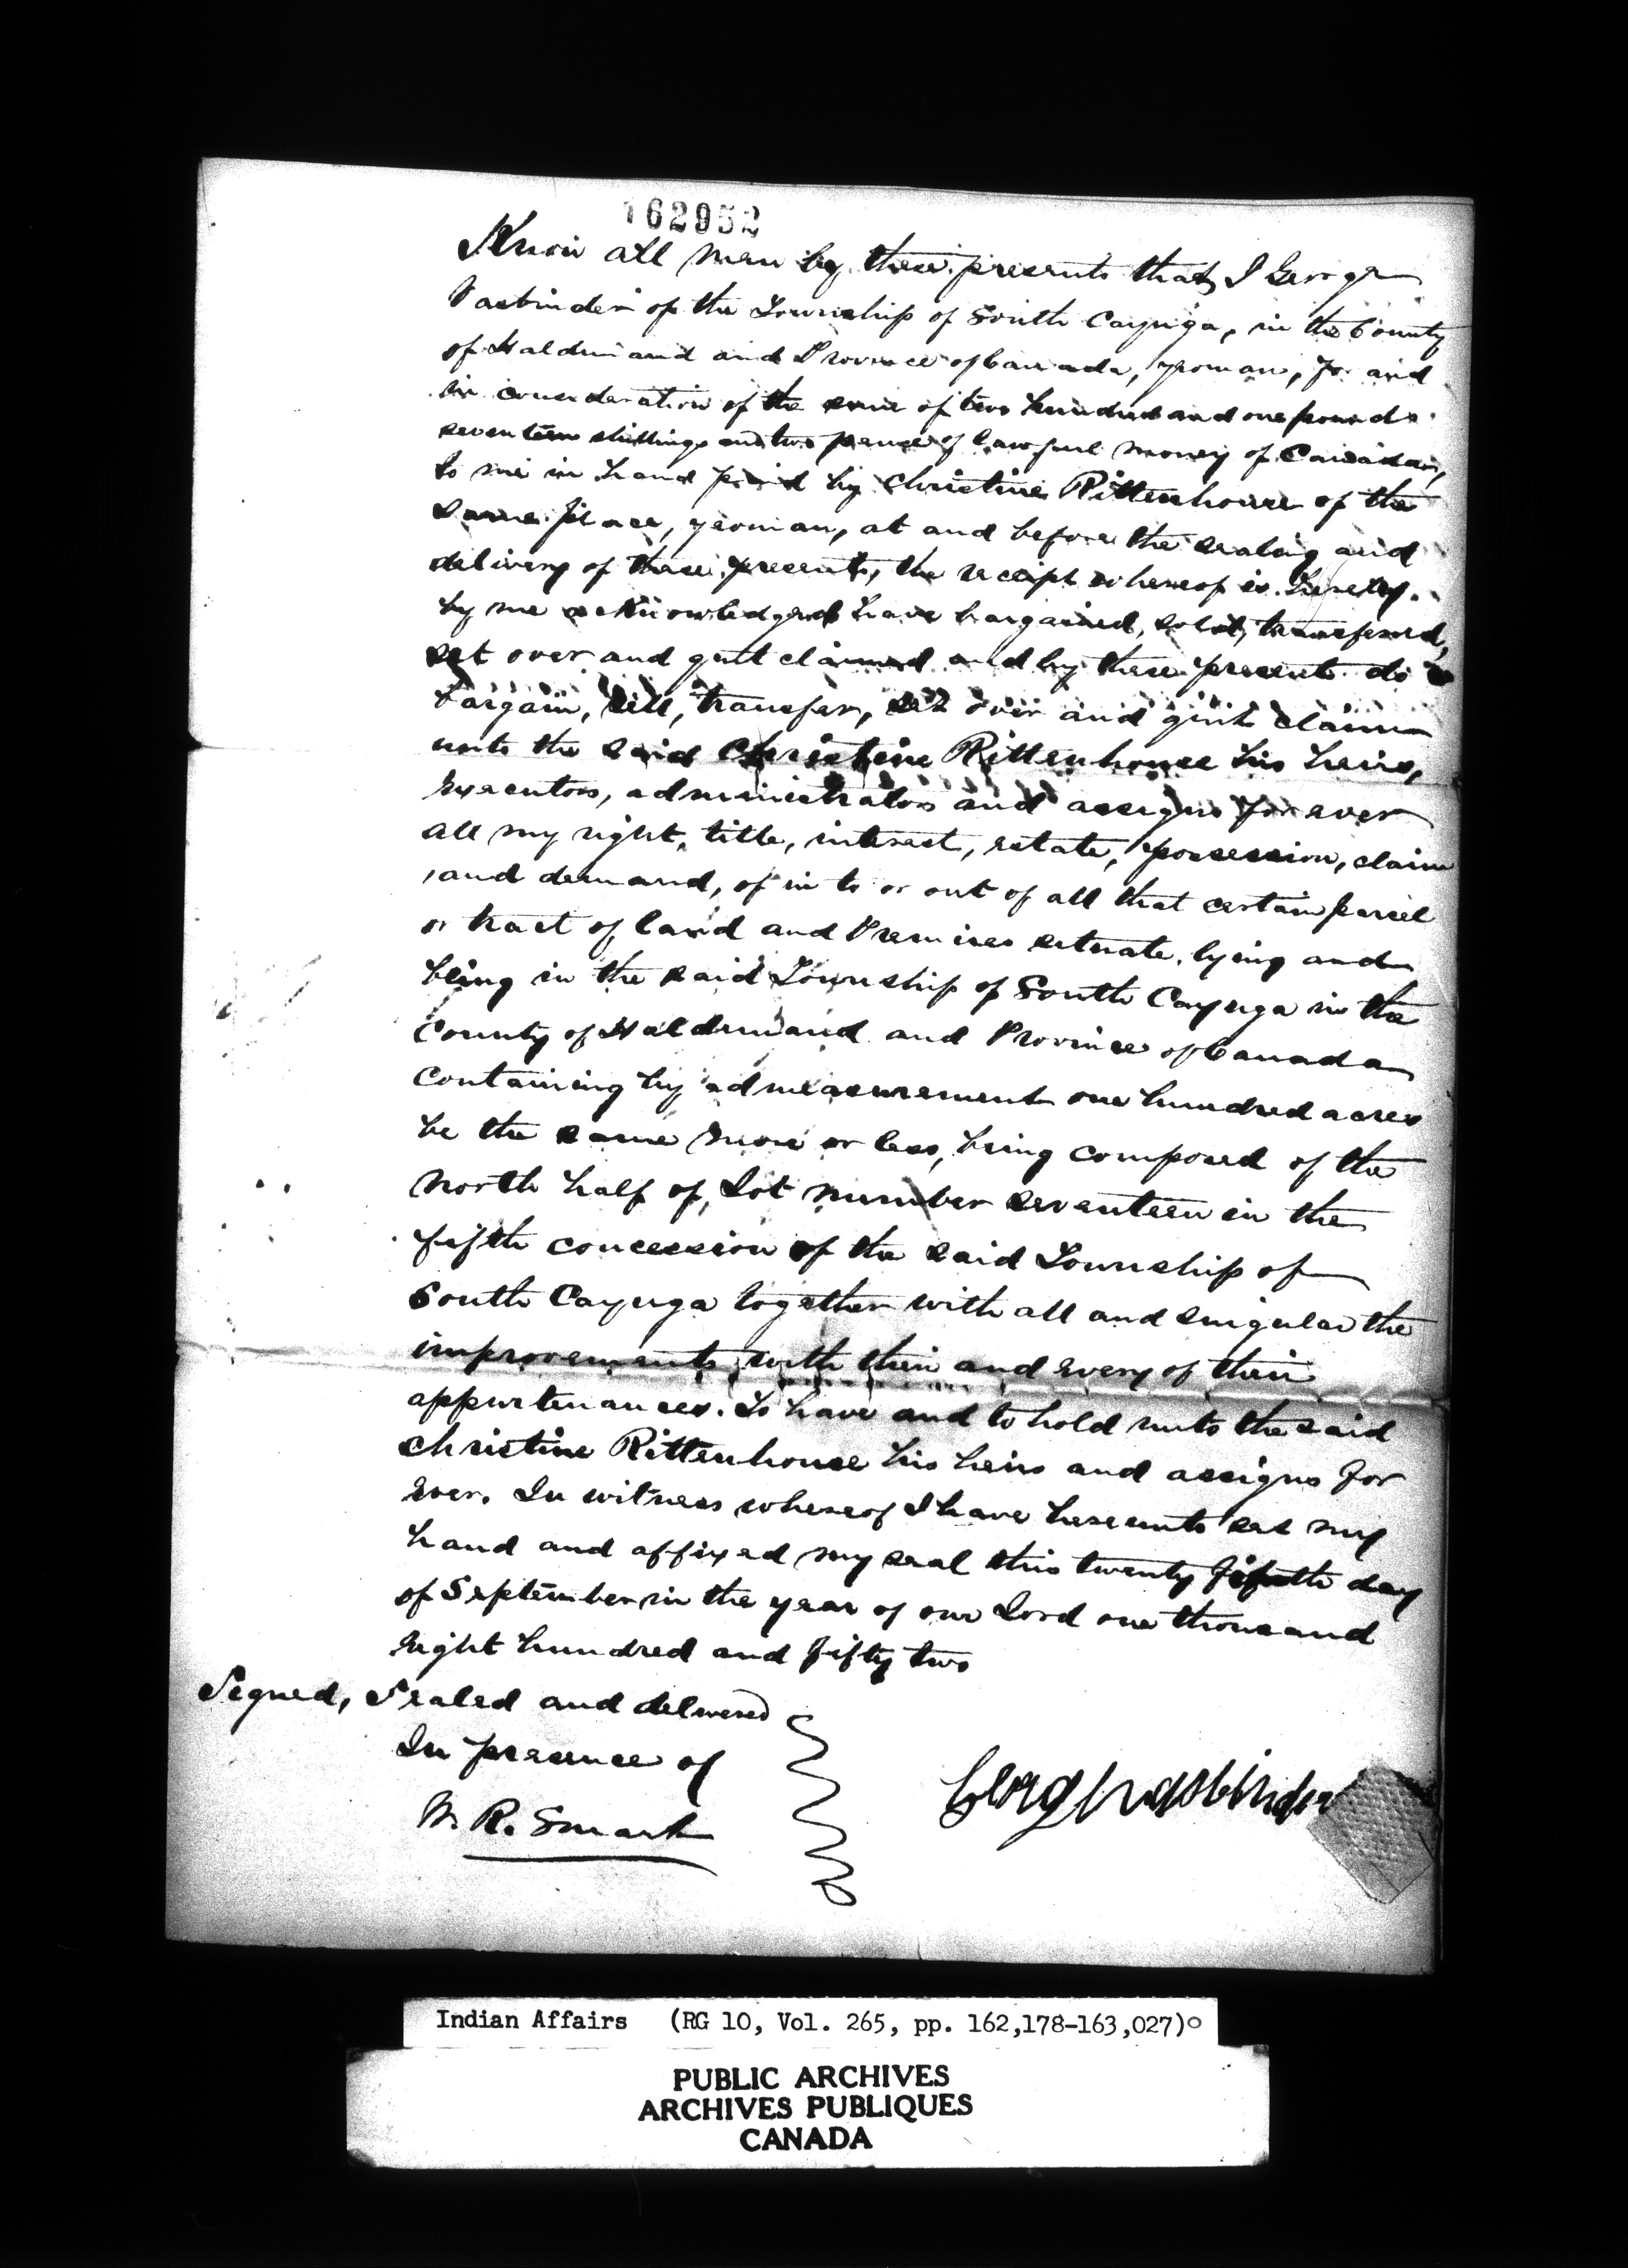 162952
Know all men by these presents that I George
Vasbinder of the Township of South Cayuga, in the County
of Haldimand and Province of Canada, yeoman, for and
in consideration of the sum of two hundred and one pounds
seventeen shillings and two pence of lawful money of Canada,
to me in hand paid by Christine Rittenhouse of the
same place, yeoman, at and before the sealing and
delivery of these presents, the receipt whereof is hereby
by me acknowledged have bargained, sold, transferred,
set over and quit claimed and by these presents do
bargain, sell, transfer, set over and quit claim
unto the said Christine Rittenhouse his heirs,
executors, administrators and assigns for ever
all my right, title, interest, estate, possession, claim
and demand, of in to or out of all that certain parcel
or tract of land and Premises situate, lying and
being in the said Township of South Cayuga in the
County of Haldimand and Province of Canada
containing by admeasurement one hundred acres
be the same more or less, being composed of the
North half of Lot number seventeen in the
fifth concession of the said Township of
South Cayuga together with all and singular the
improvements with their and every of their
appurtenances. To have and to hold unto the said
Christine Rittenhouse his heirs and assigns for
ever. In witness whereof I have hereunto set my
hand and affixed my seal this twenty fifth day
of September in the year of our Lord one thousand
eight hundred and fifty two
Signed, Sealed and delivered
In presence of
W. R. Smart
Georg Vasbinder
Indian Affairs (RG 10, Vol. 265, pp. 162,178-163,027)
PUBLIC ARCHIVES
ARCHIVES PUBLIQUES
CANADA